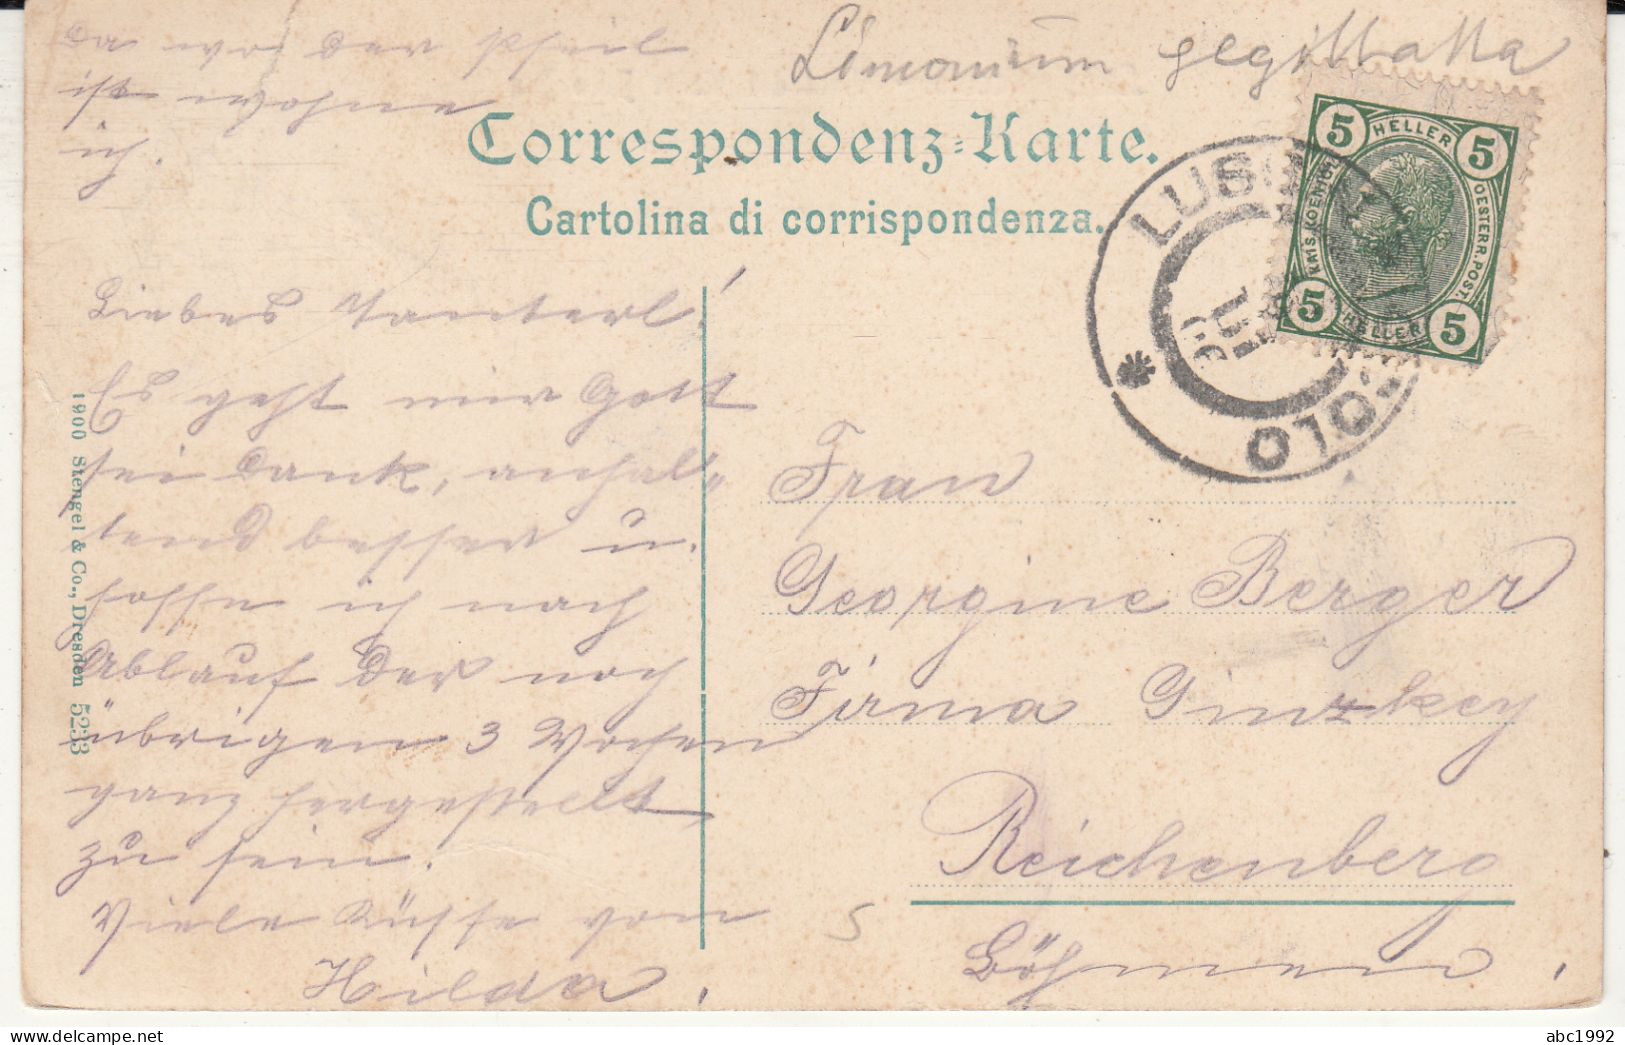 da wo der Pfeil
ist wohne
ich.
Limonium
Correspondenz-Karte.
Cartolina di corrispondenza.
5 HELLER 5
KAIS. KOENIGL.
OESTERR. POST.
5 HELLER 5
LUS
OLO
Liebes Tanterl!
Es geht mir Gott
sei Dank, anhal-
tend besser u.
hoffe ich nach
Ablauf der noch
übrigen 3 Wochen
ganz hergestellt
zu sein.
Viele Küsse von
Hilda.
1900 Stengel & Co., Dresden 5233
Frau
Georgine Berger
Firma Ginzkey
Reichenberg
Böhmen.
5
abc1992